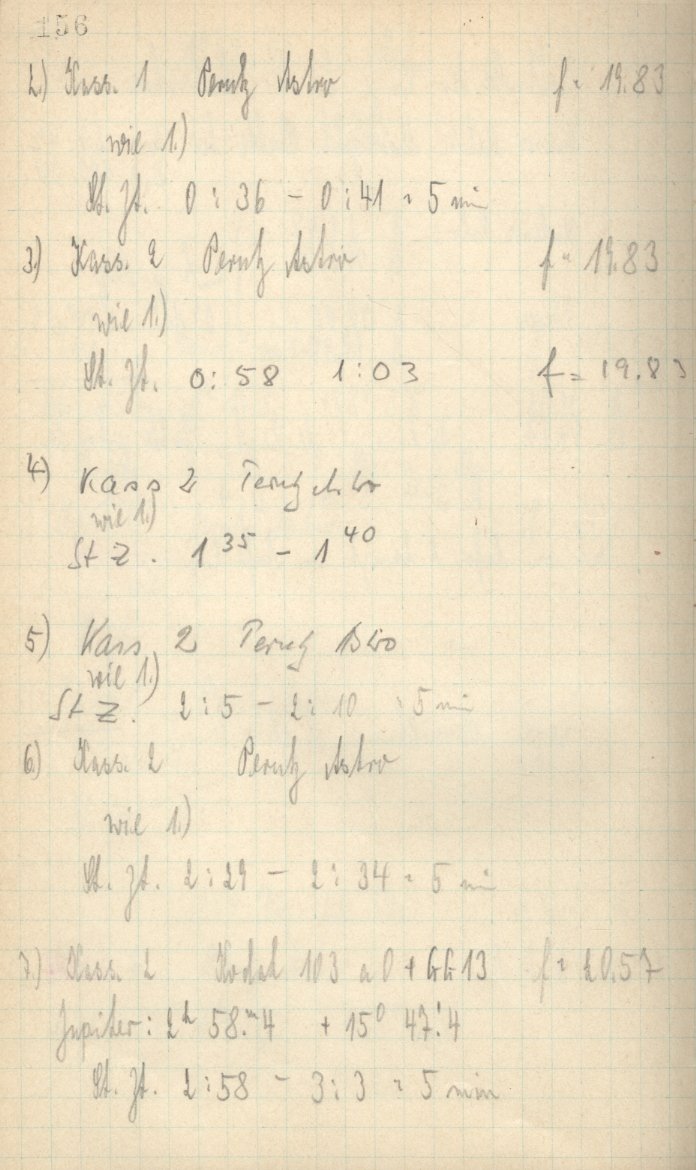 156
2.) Kass. 1 Perutz Astro f = 19.83
wie 1.)
St. Zt. 0:36 - 0:41 = 5 min
3.) Kass. 2 Perutz Astro f = 19.83
wie 1.)
St. Zt. 0:58 1:03 f = 19.83
4) Kass 2 Perutz Astro
wie 1.)
St Z. 1 35 - 1 40
5) Kass 2 Perutz Astro
wie 1.)
St Z. 2:5 - 2:10 = 5 min
6.) Kass. 2 Perutz Astro
wie 1.)
St. Zt. 2:29 - 2:34 = 5 min
7.) Kass. 2 Kodak 103 a 0 + GG 13 f = 20.57
Jupiter: 2h 58.m4 + 15° 47.'4
St. Zt. 2:58 - 3:3 = 5 min